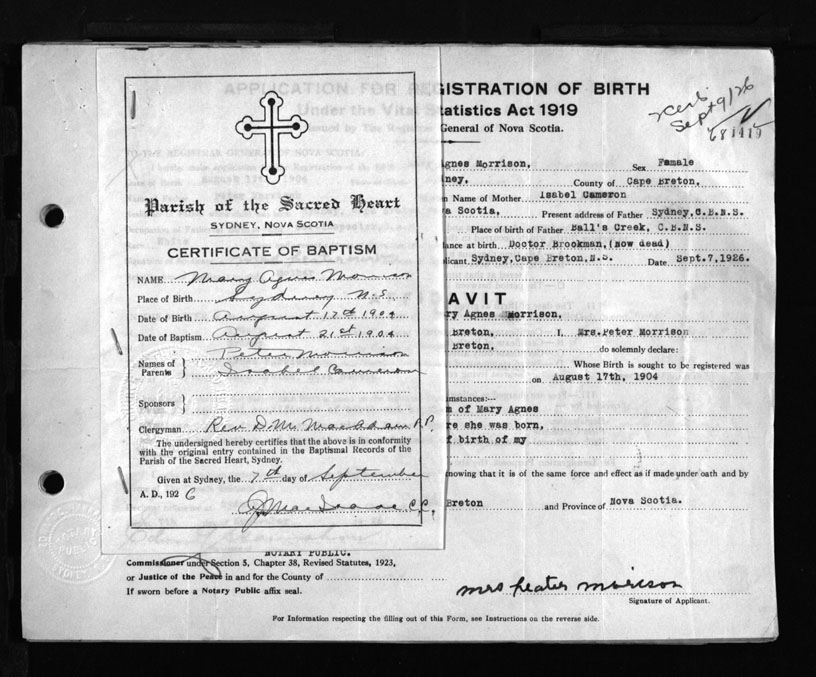 Parish of the Sacred Heart
SYDNEY, NOVA SCOTIA
CERTIFICATE OF BAPTISM
NAME Mary Agnes Morrison
Place of Birth Sydney N.S.
Date of Birth August 17th 1904
Date of Baptism August 21st 1904
Names of Parents } Peter Morrison
Isabel Cameron
Sponsors }
Clergyman Rev. D. M. P.P.
The undersigned hereby certifies that the above is in conformity
with the original entry contained in the Baptismal Records of the
Parish of the Sacred Heart, Sydney.
Given at Sydney, the 7th day of September
A. D., 1926
C.C.
APPLICATION FOR REGISTRATION OF BIRTH
Under the Vital Statistics Act 1919
General of Nova Scotia.
Sept 9/26
Agnes Morrison, Sex Female
ney, County of Cape Breton,
Name of Mother Isabel Cameron
a Scotia, Present address of Father Sydney,C.B.N.S.
Place of birth of Father Ball's Creek, C.B.N.S.
ance at birth Doctor Brookman,(now dead)
licant Sydney,Cape Breton,N.S. Date Sept.7,1926.
AVIT
ry Agnes Morrison,
Breton, I, Mrs.Peter Morrison
Breton, do solemnly declare:
Whose Birth is sought to be registered was
on August 17th, 1904
umstances:—
m of Mary Agnes
re she was born,
f birth of my
nowing that it is of the same force and effect as if made under oath and by
Breton and Province of Nova Scotia.
NOTARY PUBLIC.
Commissioner under Section 5, Chapter 38, Revised Statutes, 1923,
or Justice of the Peace in and for the County of
If sworn before a Notary Public affix seal.
mrs peater morison
Signature of Applicant.
For Information respecting the filling out of this Form, see Instructions on the reverse side.